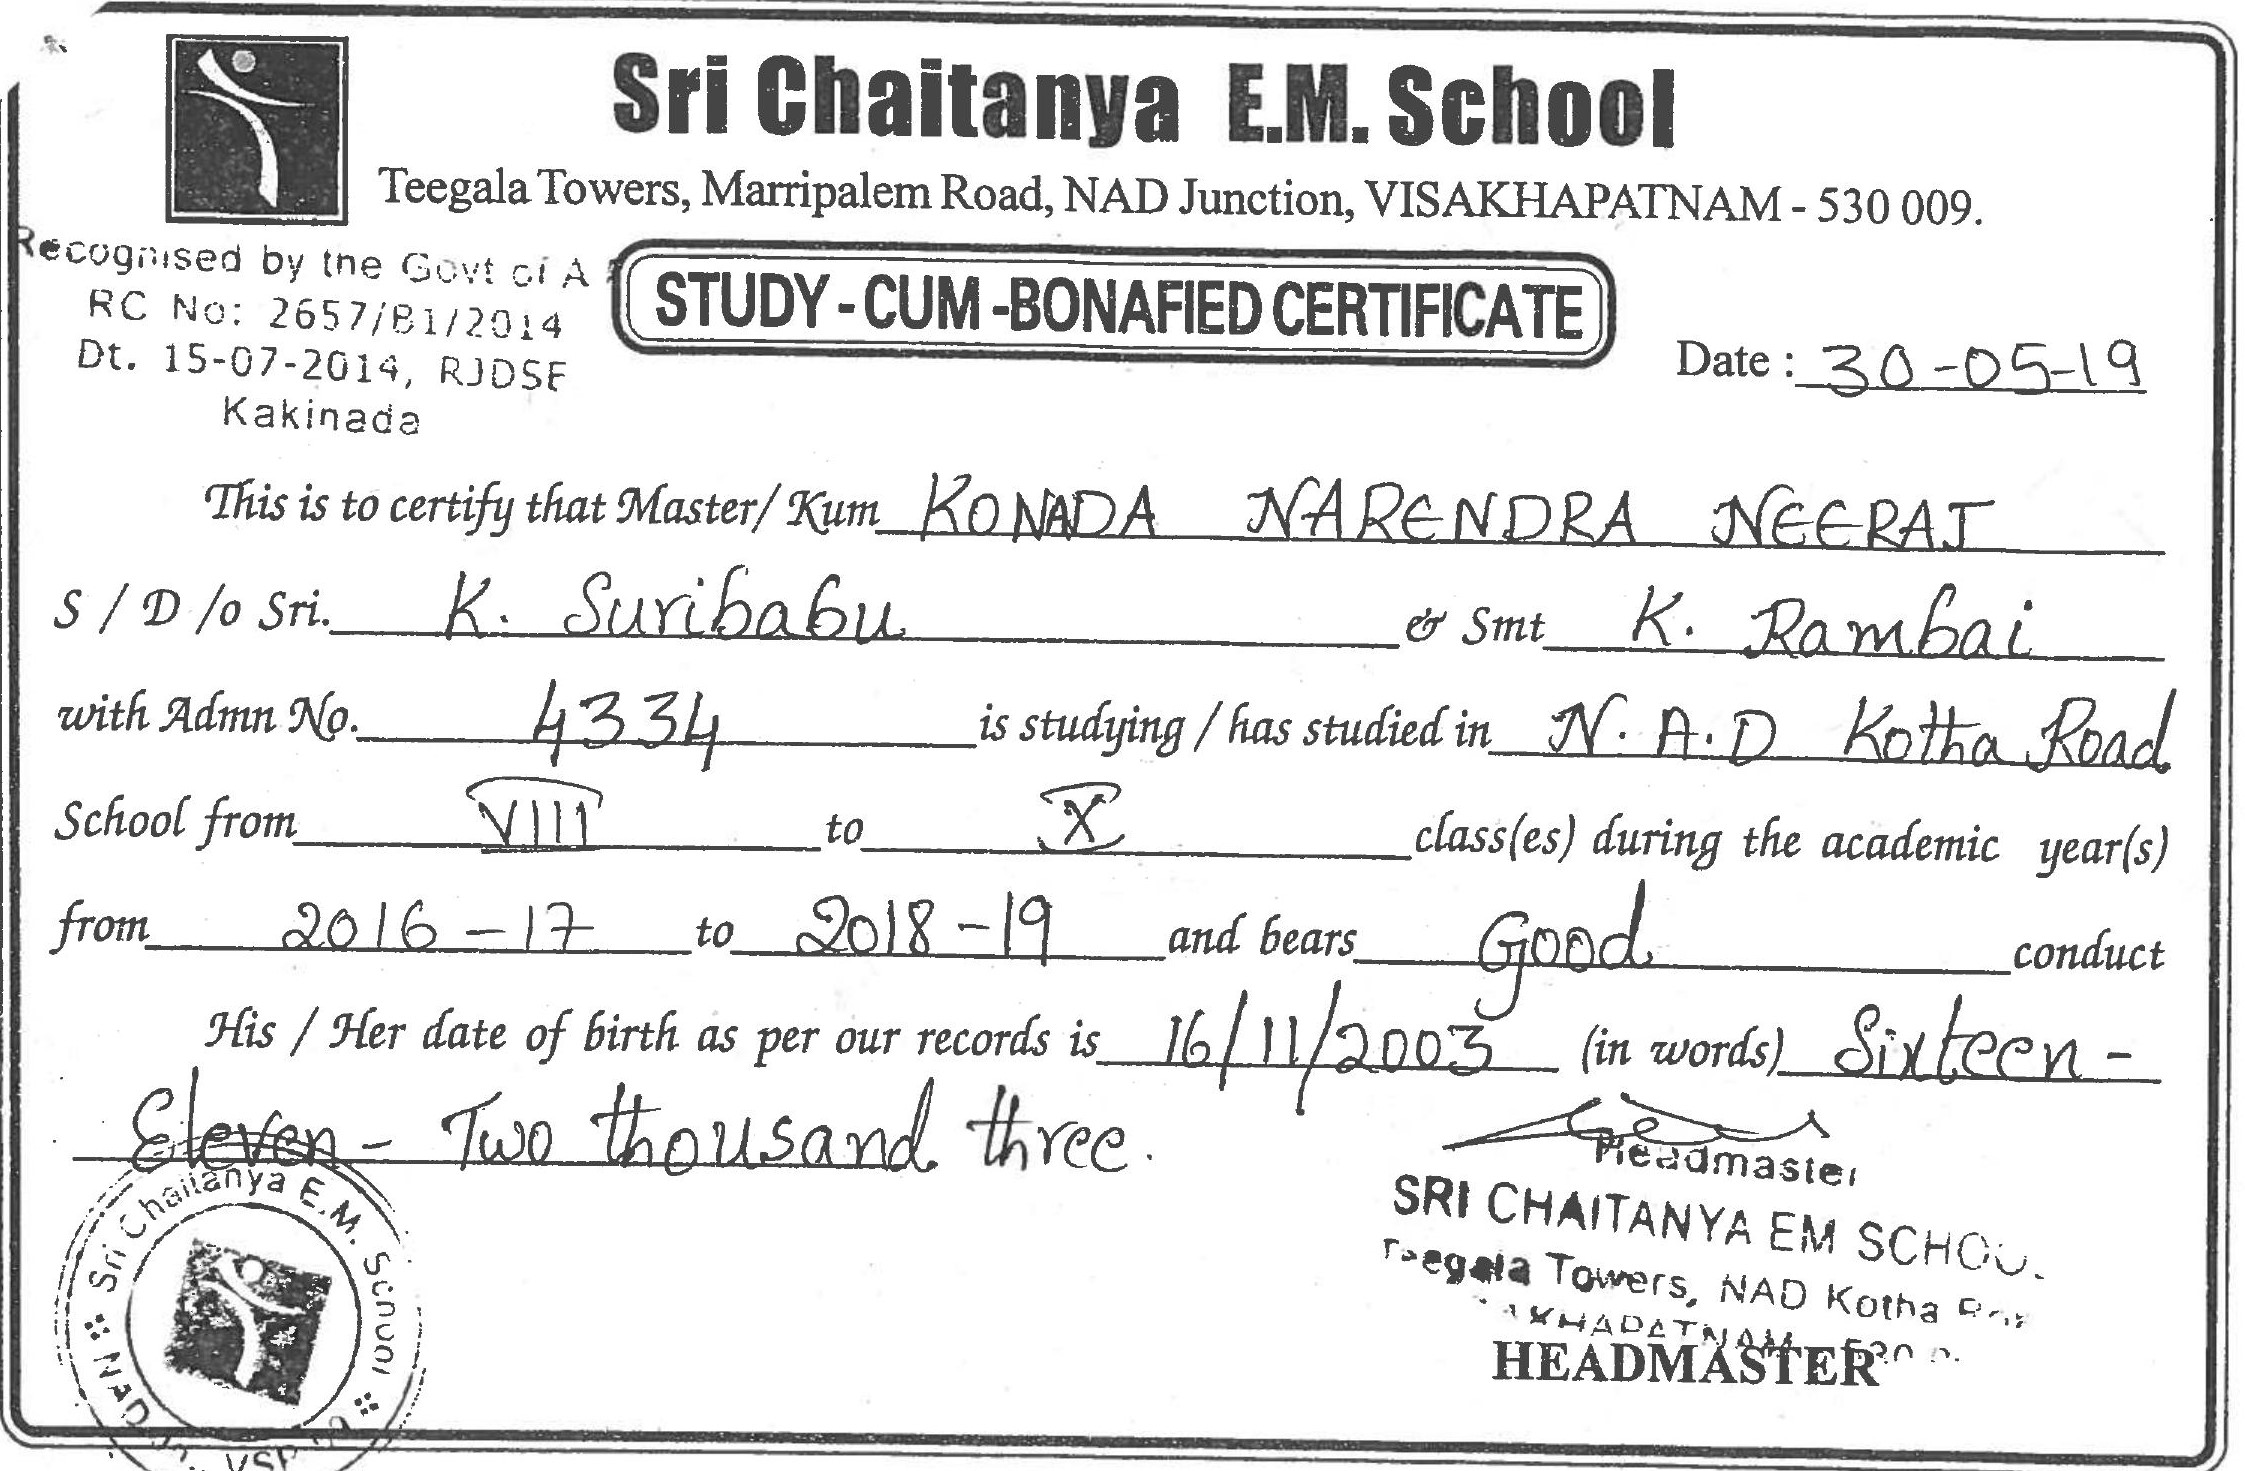 Sri Chaitanya E.M. School
Teegala Towers, Marripalem Road, NAD Junction, VISAKHAPATNAM - 530 009.
Recognised by the Govt of A
RC No: 2657/B1/2014
Dt. 15-07-2014, RJDSE
Kakinada
STUDY - CUM -BONAFIED CERTIFICATE
Date : 30-05-19
This is to certify that Master/ Kum KONADA NARENDRA NEERAJ
S / D /o Sri. K. Suribabu & Smt K. Rambai
with Admn No. 4334 is studying / has studied in N.A.D Kotha Road
School from VIII to X class(es) during the academic year(s)
from 2016-17 to 2018-19 and bears Good conduct
His / Her date of birth as per our records is 16/11/2003 (in words) Sixteen -
Eleven - Two thousand three.
Headmaster
SRI CHAITANYA EM SCHOOL
Teegala Towers, NAD Kotha
HEADMASTER
Sri Chaitanya E.M. School
NAD VSP